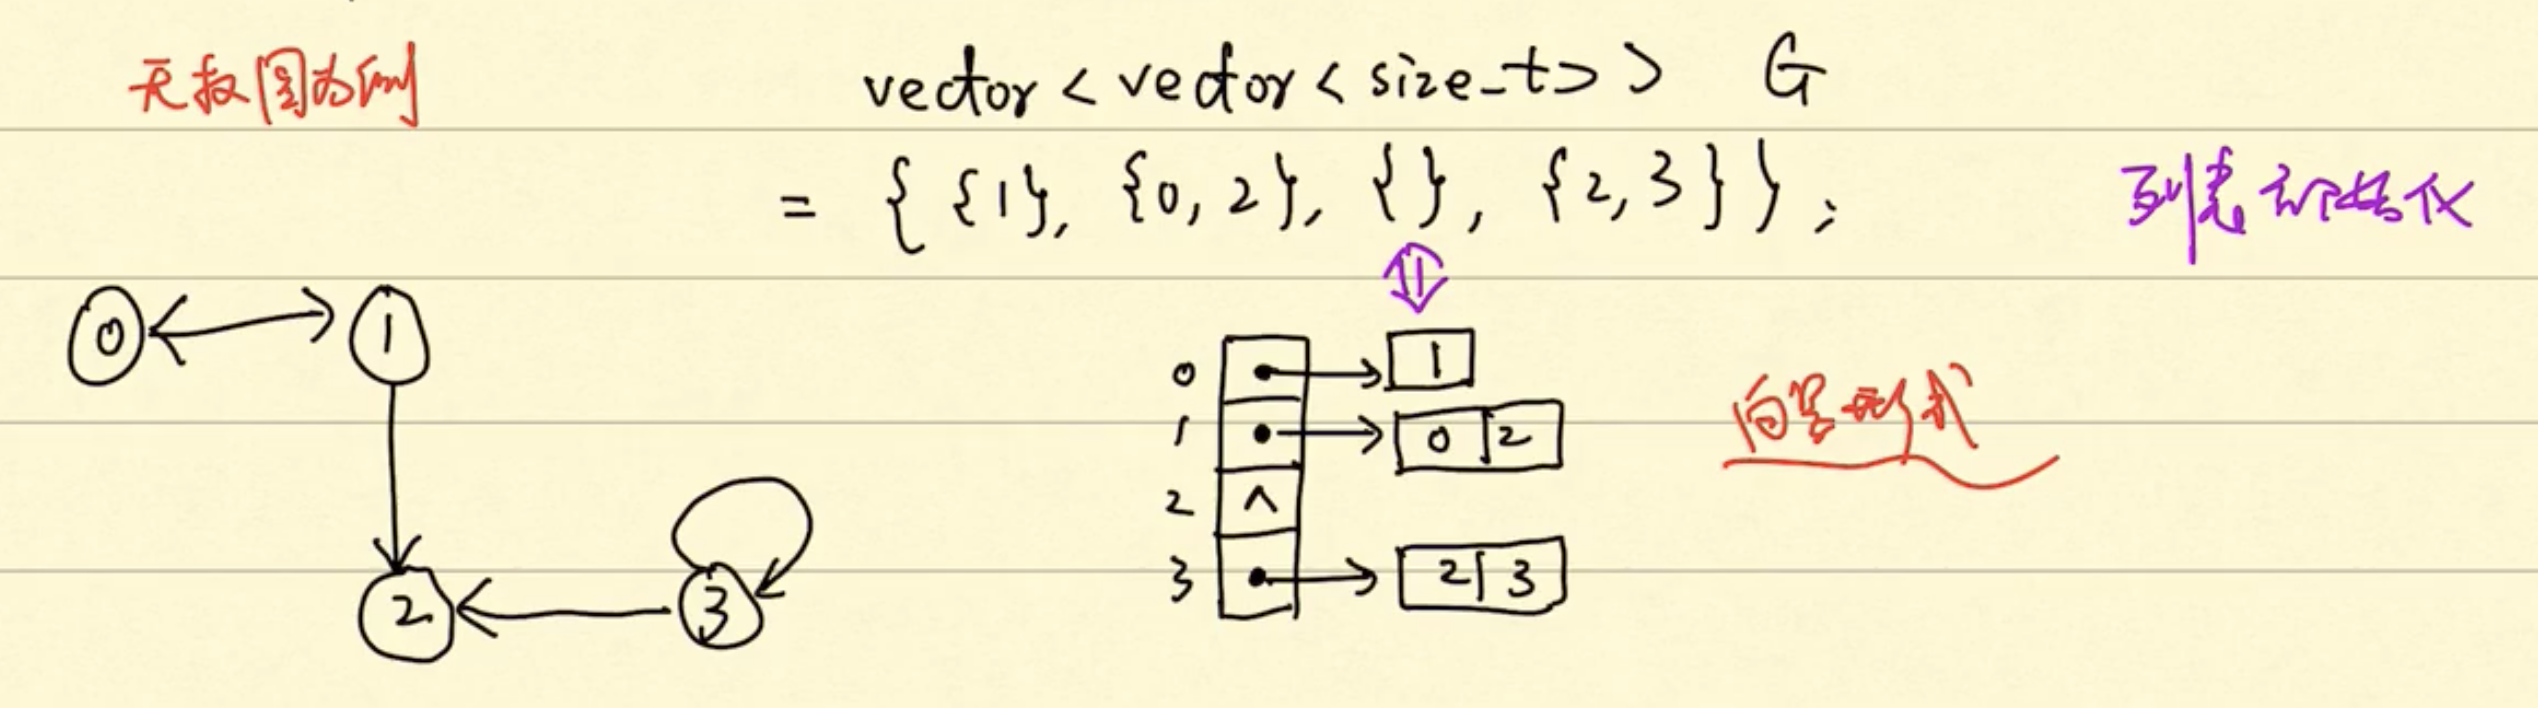 无权图为例
vector<vector<size_t>> G
= { {1}, {0, 2}, {}, {2, 3} };
列表初始化
0
1
2
3
0
1
2
3
1
0 2
∧
2 3
向量形式